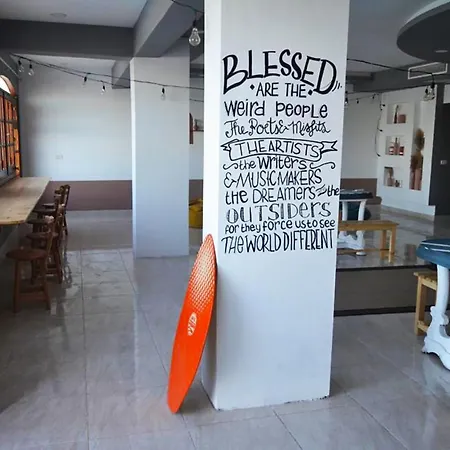 BLESSED
ARE THE
Weird PEOPLE
The Poets & Misfits
THE ARTISTS
the WRITERS
& MUSIC MAKERS
THE DREAMERS the
OUTSIDERS
for they force us to see
THE WORLD DIFFERENT